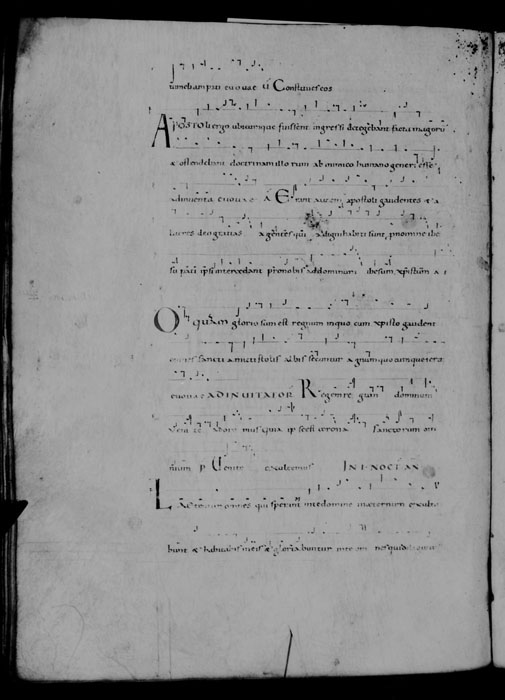 pati euouae Constitues eos
APOSTOLI ergo ubicumque fuissent ingressi detegebant facta magorū
& ostendebant doctrinam illorum ab inimico humano generi esse
adinuenta euouae A Erant autem apostoli gaudentes & a
deo gratias agentes qui digni habiti sunt, pro nomine ihe
su pati ipsi intercedant pro nobis ad dominum ihesum
O quam gloriosum est regnum in quo cum xpisto gaudent
omnes sancti amicti stolis albis secuntur agnum quocumque
euouae ADINUITATOR Regem regum dominum
Venite adoremus quia ipse corona sanctorum om
nium p Uenite exultemus IN I NOCT AN
Laetentur omnes qui sperant in te domine in aeternum exulta
bunt & habitabis in eis & gloriabuntur in te